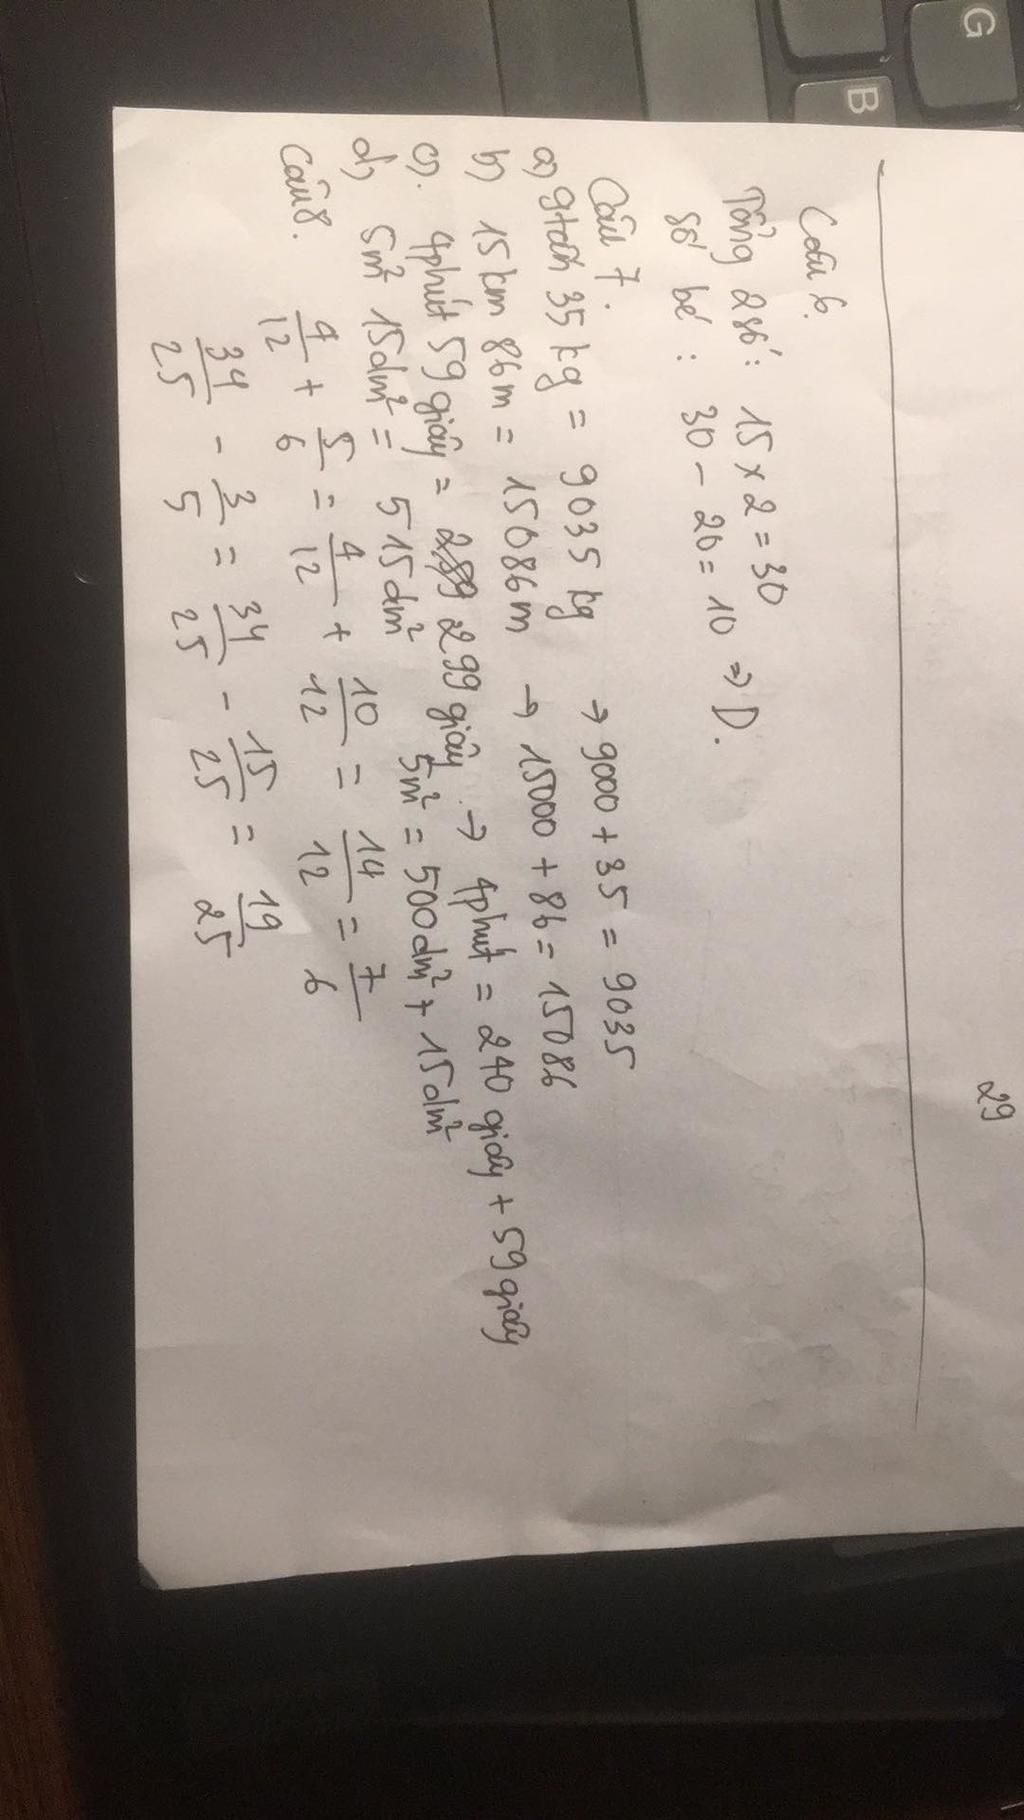 29
Câu 6.
Tổng 2 số: 15 x 2 = 30
Số bé: 30 - 20 = 10 => D.
Câu 7.
a) 9tấn 35 kg = 9035 kg → 9000 + 35 = 9035
b) 15 km 86m = 15086m → 15000 + 86 = 15086
c). 4phút 59 giây = 299 giây → 4phút = 240 giây + 59 giây
d) 5m² 15dm² = 515dm² 5m² = 500dm² + 15dm²
Câu 8. 4/12 + 5/6 = 4/12 + 10/12 = 14/12 = 7/6
34/25 - 3/5 = 34/25 - 15/25 = 19/25
G
B